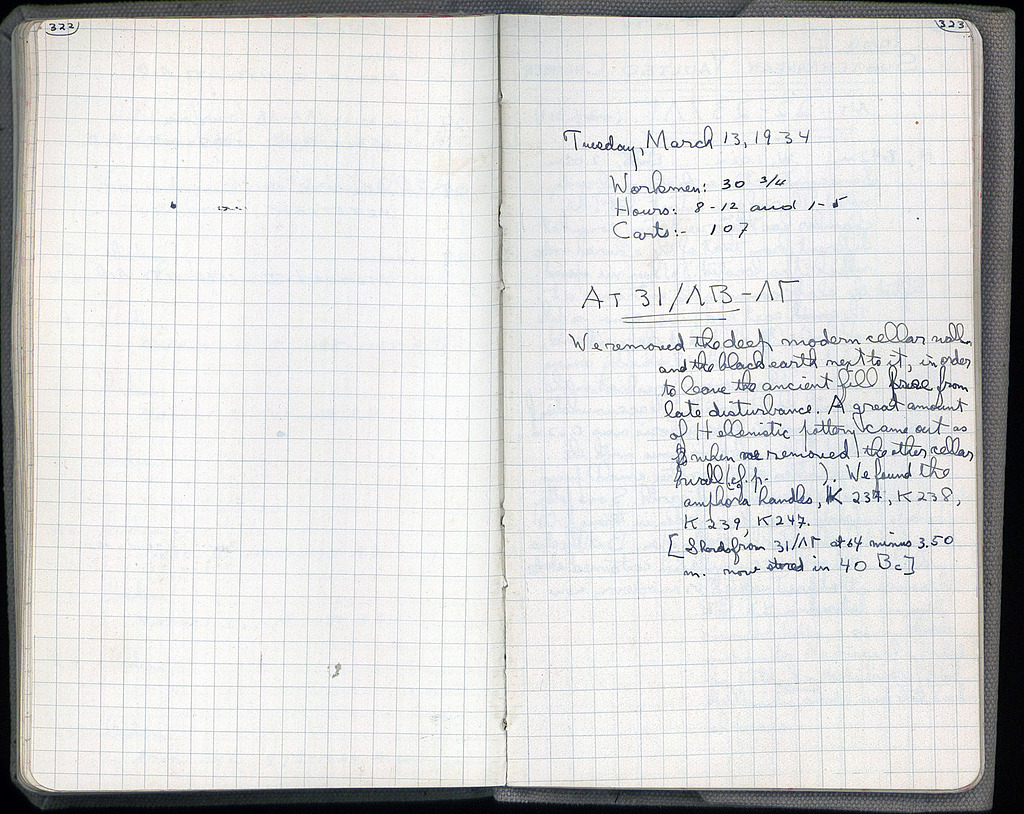 322
323
Tuesday, March 13, 1934
Workmen: 30 3/4
Hours: 8-12 and 1-5
Carts:- 107
AT 31/ΛΒ-ΛΓ
We removed the deep modern cellar wall
and the black earth next to it, in order
to leave the ancient fill free from
late disturbance. A great amount
of Hellenistic pottery came out as
when we removed the other cellar
wall (cf. p. ). We found the
amphora handles, K 237, K 238,
K 239, K 247.
[Sherds from 31/ΛΓ at 64 minus 3.50
m. now stored in 40 Bc]